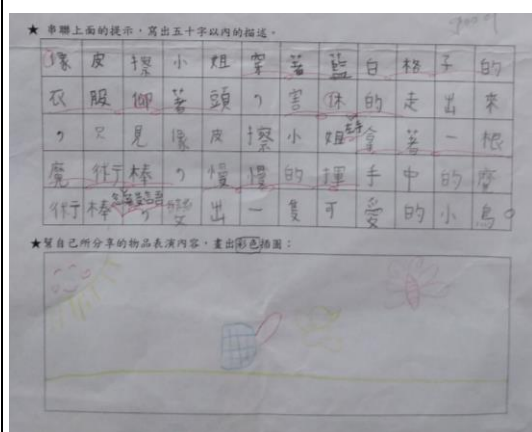 ★ 串聯上面的提示，寫出五十字以內的描述。
像皮擦小姐穿著藍白格子的
衣服仰著頭，害休的走出來
，只見像皮擦小姐左手拿著一根
魔術棒，慢慢的揮手中的魔
術棒，變出一隻可愛的小鳥。
★幫自己所分享的物品表演內容，畫出彩色插圖：